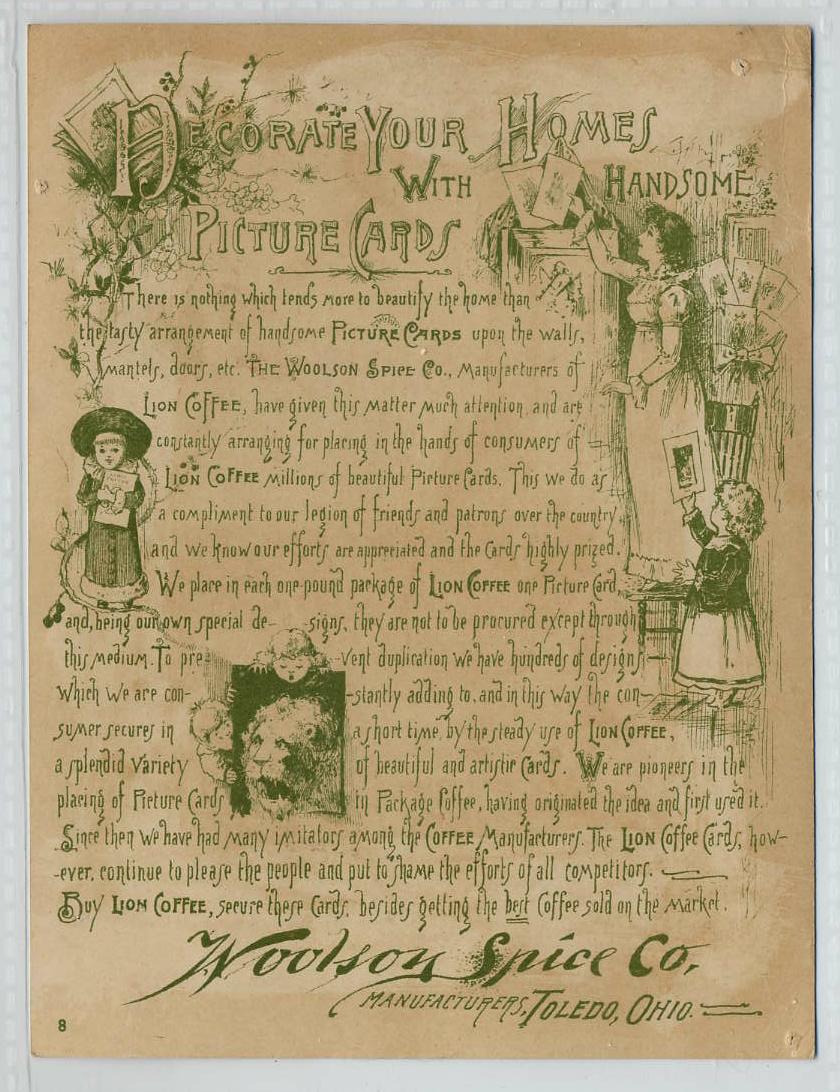 DECORATE YOUR HOMES
WITH HANDSOME
PICTURE CARDS
There is nothing which tends more to beautify the home than
the tasty arrangement of handsome PICTURE CARDS upon the walls,
mantels, doors, etc. THE WOOLSON SPICE CO., Manufacturers of
LION COFFEE, have given this matter much attention, and are
constantly arranging for placing in the hands of consumers of
LION COFFEE millions of beautiful Picture Cards. This we do as
a compliment to our legion of friends and patrons over the country,
and we know our efforts are appreciated and the Cards highly prized.
We place in each one-pound package of LION COFFEE one Picture Card,
and, being our own special de- signs, they are not to be procured except through
this medium. To pre- vent duplication we have hundreds of designs,
which we are con- stantly adding to, and in this way the con-
sumer secures in a short time, by the steady use of LION COFFEE,
a splendid variety of beautiful and artistic Cards. We are pioneers in the
placing of Picture Cards in Package Coffee, having originated the idea and first used it.
Since then we have had many imitators among the COFFEE Manufacturers. The LION Coffee Cards, how-
-ever, continue to please the people and put to shame the efforts of all competitors.
Buy LION COFFEE, secure these Cards, besides getting the best Coffee sold on the market.
Woolson Spice Co.,
MANUFACTURERS, TOLEDO, OHIO.
8